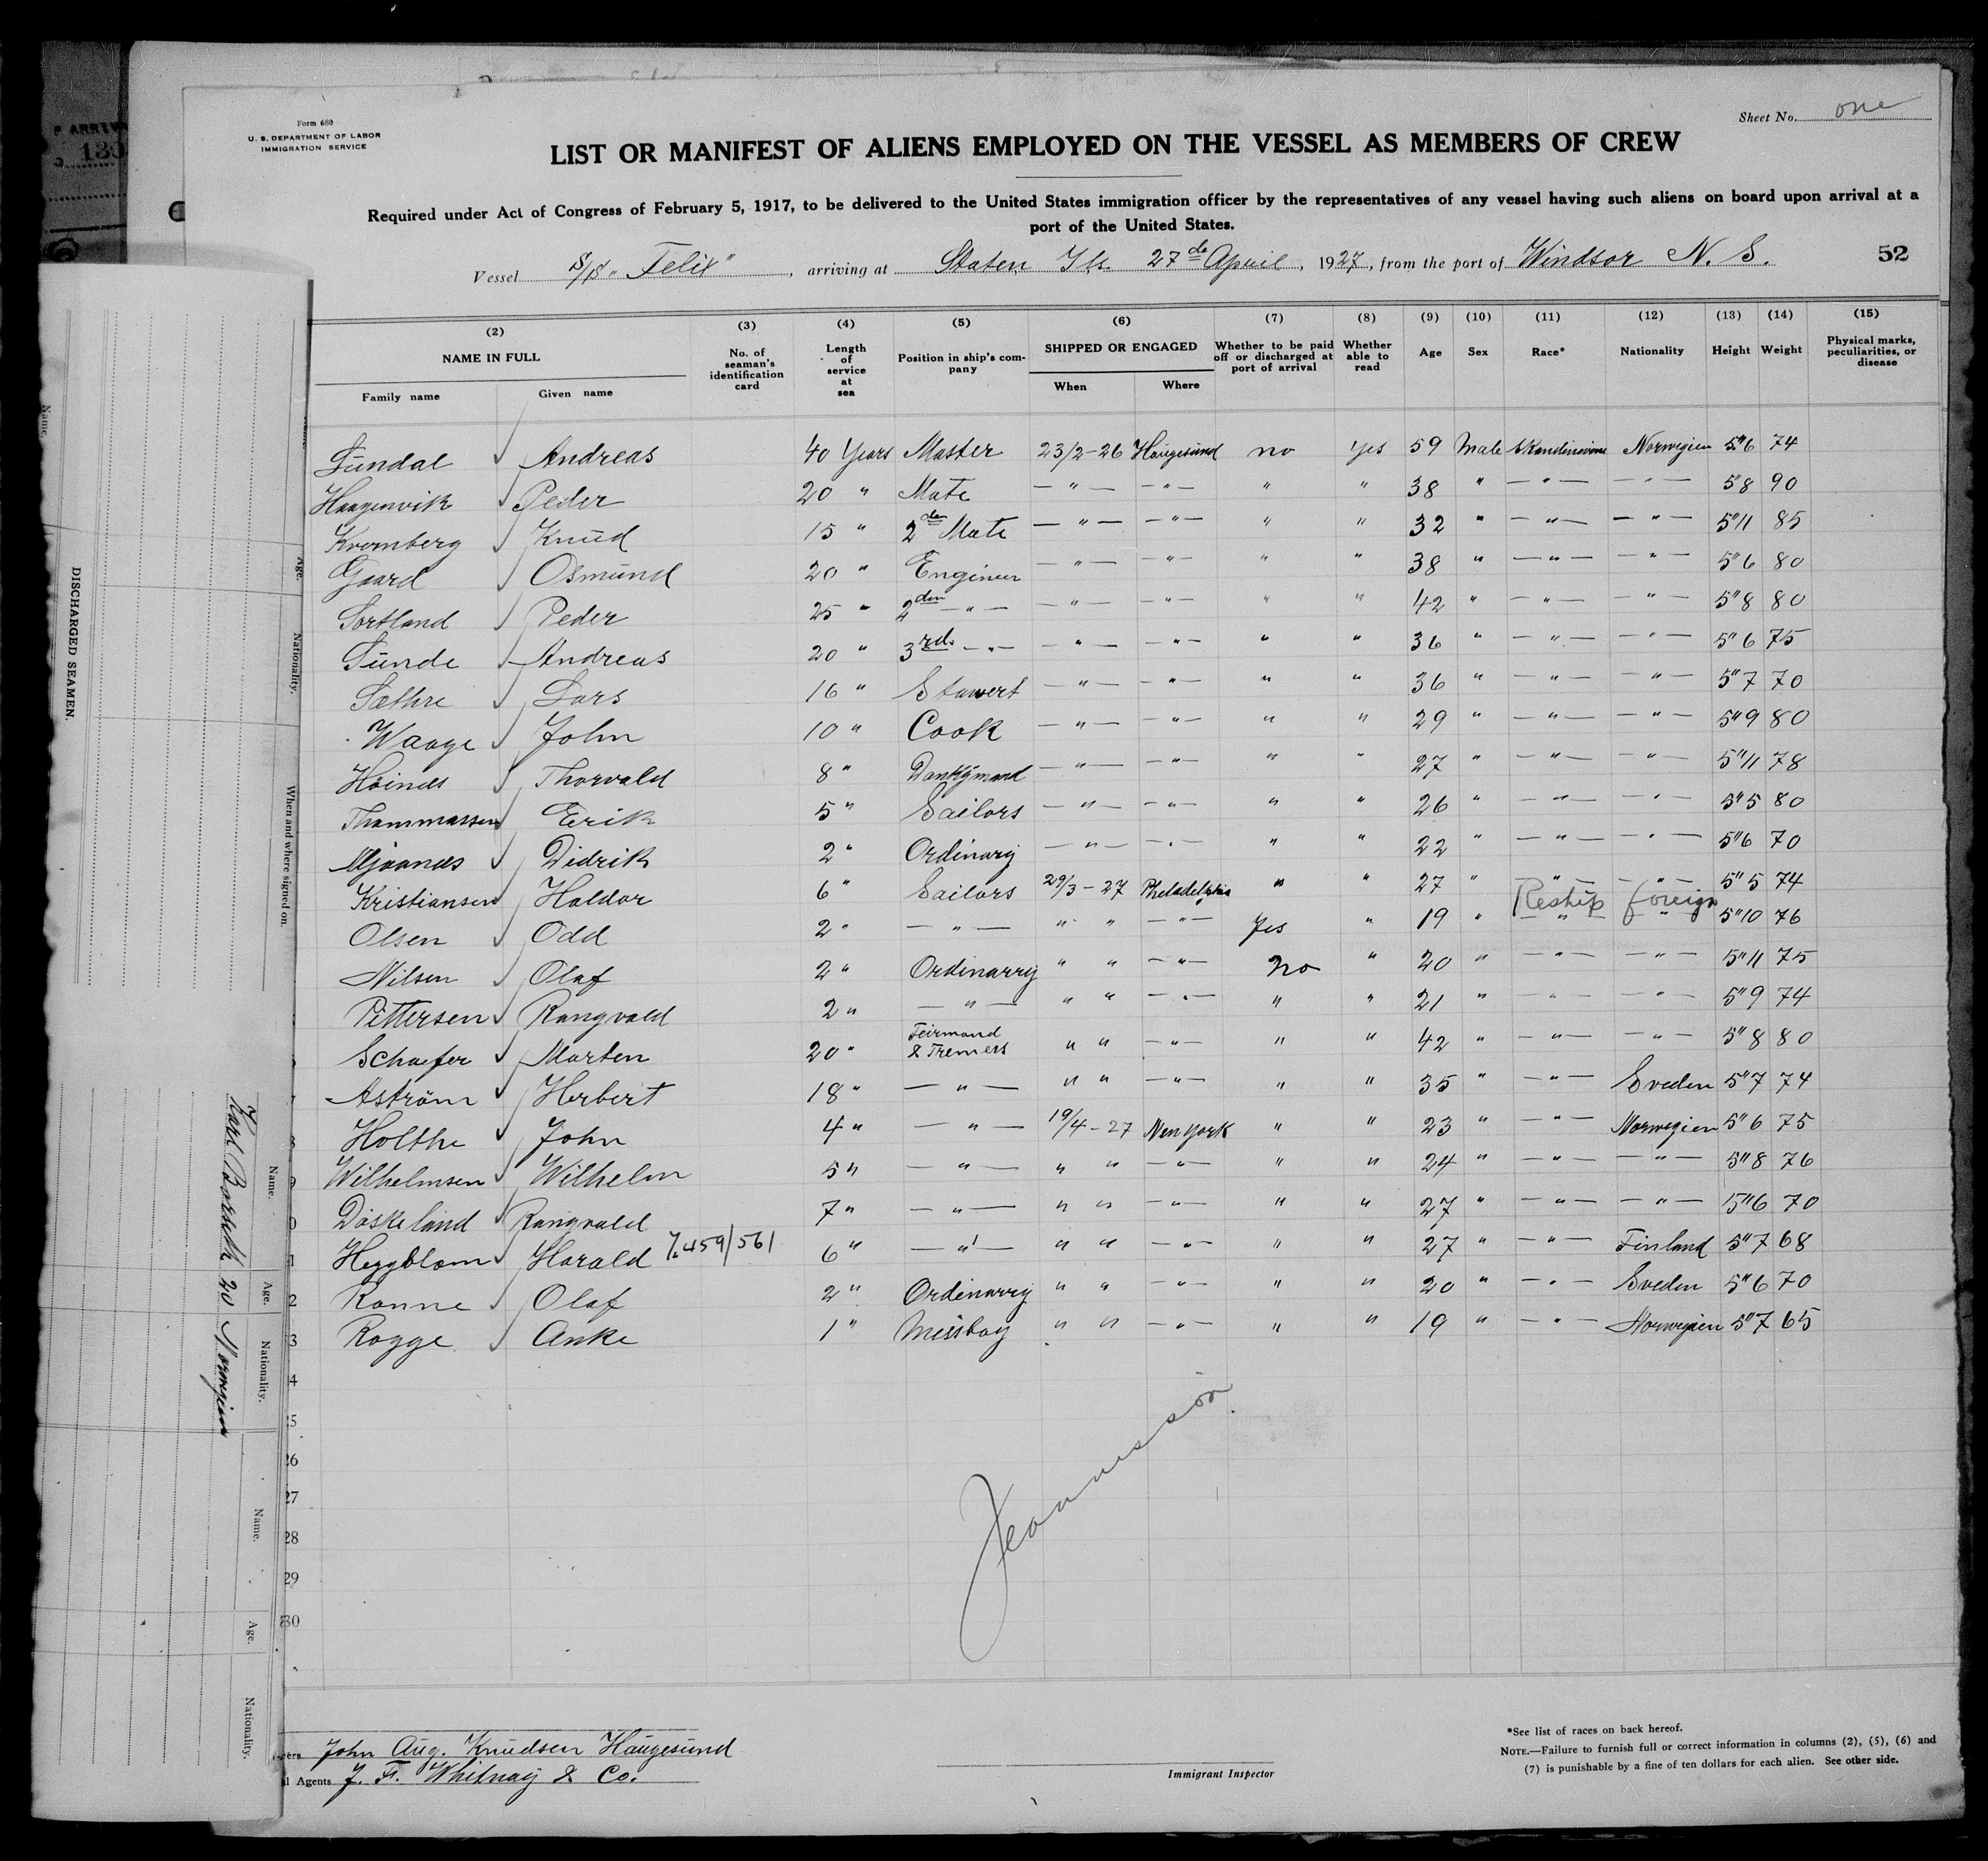 Form 680
U. S. DEPARTMENT OF LABOR
IMMIGRATION SERVICE
Sheet No. one
LIST OR MANIFEST OF ALIENS EMPLOYED ON THE VESSEL AS MEMBERS OF CREW
Required under Act of Congress of February 5, 1917, to be delivered to the United States immigration officer by the representatives of any vessel having such aliens on board upon arrival at a
port of the United States.
Vessel S/S "Felix", arriving at Staten Isl. 27de April, 1927, from the port of Windsor N. S. 52
(2) (3) (4) (5) (6) (7) (8) (9) (10) (11) (12) (13) (14) (15)
NAME IN FULL
Family name Given name
No. of seaman's identification card
Length of service at sea
Position in ship's company
SHIPPED OR ENGAGED
When Where
Whether to be paid off or discharged at port of arrival
Whether able to read
Age Sex Race* Nationality Height Weight
Physical marks, peculiarities, or disease
Sundal Andreas 40 Years Master 23/2-26 Haugesund no Yes 59 Male Skandinavian Norwegien 5"6 74
Haagenvik Peder 20 " Mate — " — — " — " " 38 " — " — — " — 5"8 90
Kvernberg Knud 15 " 2den Mate — " — — " — " " 32 " — " — — " — 5"11 85
Gaard Osmund 20 " Engineer — " — — " — " " 38 " — " — — " — 5"6 80
Sortland Peder 25 " 2den — " — — " — — " — " " 42 " — " — — " — 5"8 80
Sunde Andreas 20 " 3rd. — " — — " — — " — " " 36 " — " — — " — 5"6 75
Sæthre Lars 16 " Stuwert — " — — " — " " 36 " — " — — " — 5"7 70
Waage John 10 " Cook — " — — " — " " 29 " — " — — " — 5"9 80
Hoines Thorvald 8 " Donkymand — " — — " — " " 27 " — " — — " — 5"11 78
Thommassen Erik 5 " Sailors — " — — " — " " 26 " — " — — " — 5"5 80
Mjaanes Didrik 2 " Ordinary — " — — " — " " 22 " — " — — " — 5"6 70
Kristiansen Haldor 6 " Sailors 29/3-27 Pheladelphia " " 27 " — " — — " — 5"5 74
Reship foreign
Olsen Odd 2 " — " — " " — " — Yes " 19 " — " — — " — 5"10 76
Nilsen Olaf 2 " Ordinarry " " — " — no " 20 " — " — — " — 5"11 75
Pettersen Rangvald 2 " — " — " " — " — " " 21 " — " — — " — 5"9 74
Schaefer Marten 20 " Feirmand & Tremers " " — " — " " 42 " — " — — " — 5"8 80
Aström Herbert 18 " — " — " " — " — " " 35 " — " — Sveden 5"7 74
Holthe John 4 " — " — 19/4-27 New york " " 23 " — " — Norwegien 5"6 75
Wilhelmsen Wilhelm 5 " — " — " " — " — " " 24 " — " — — " — 5"8 76
Döskeland Rangvald 7 " — " — " " — " — " " 27 " — " — — " — 5"6 70
Heggblom Harald 7.459/561 6 " — " — " " — " — " " 27 " — " — Finland 5"7 68
Ronne Olaf 2 " Ordinarry " " — " — " " 20 " — " — Sveden 5"6 70
Rogge Anke 1 " Messboy " " — " — " " 19 " — " — Norwegien 5"7 65
4
25
26
27
28
29
30
John Aug. Knudsen Haugesund
l Agents J. F. Whitnay & Co.
Immigrant Inspector
*See list of races on back hereof.
NOTE.—Failure to furnish full or correct information in columns (2), (5), (6) and
(7) is punishable by a fine of ten dollars for each alien. See other side.
DISCHARGED SEAMEN.
Name. Age. Nationality. When and where signed on.
Name. Age. Nationality.
Karl Barseth 20 Norwegien
Name. Age. Nationality.